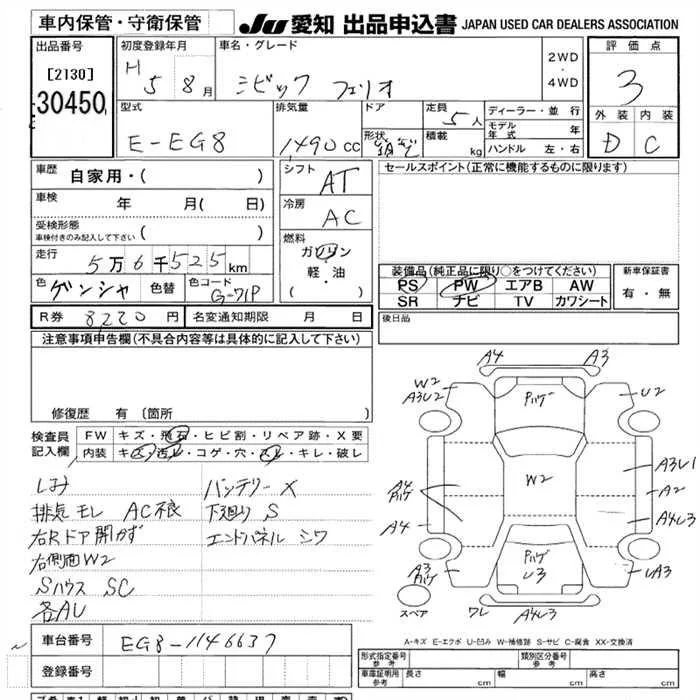 車内保管・守衛保管
JU 愛知 出品申込書 JAPAN USED CAR DEALERS ASSOCIATION
出品番号
[2130]
30450
初度登録年月
H 5 8月
車名・グレード
シビック フェリオ
2WD
・
4WD
評価点
3
外装 内装
D C
型式
E-EG8
排気量
1,490cc
ドア
形状
定員
5人
積載
kg
ディーラー・並行
モデル年式 年
ハンドル 左・右
車歴
自家用・( )
車検
年 月( 日)
受検形態
車検付きのみ記入して下さい
走行
5万6千525km
色
ゲンシャ
色替
色コード
G-71P
シフト
AT
冷房
AC
燃料
ガソリン
軽・油
( )
セールスポイント(正常に機能するものに限ります)
装備品(純正品に限り○をつけてください)
PS PW エアB AW
SR ナビ TV カワシート
新車保証書
有・無
R券 8220円
名変通知期限 月 日
後日品
注意事項申告欄(不具合内容等は具体的に記入して下さい)
修復歴 有(箇所 )
検査員記入欄
FW キズ・飛石・ヒビ割・リペア跡・X要
内装 キズ・汚れ・コゲ・穴・スレ・キレ・破レ
しみ
排気モレ AC不良
右Rドア開かず
右側面W2
Sハウス SC
各AU
バッテリーX
下廻りS
エンドパネル シワ
A4 A3
W2
A3U2
パハゲ
U2
W2
A4
ハゲ
A3U1
A2
A4
A4U3
A3
ハゲ
パハゲ
U3
UA3
スペア
ワレ
A4U3
A-キズ E-エクボ U-凹み W-補修跡 S-サビ C-腐食 XX-交換済
車台番号
EG8-1146637
登録番号
形式指定番号
参考
類別区分番号
参考
車庫証明用
参考
長さ cm
幅 cm
高さ cm